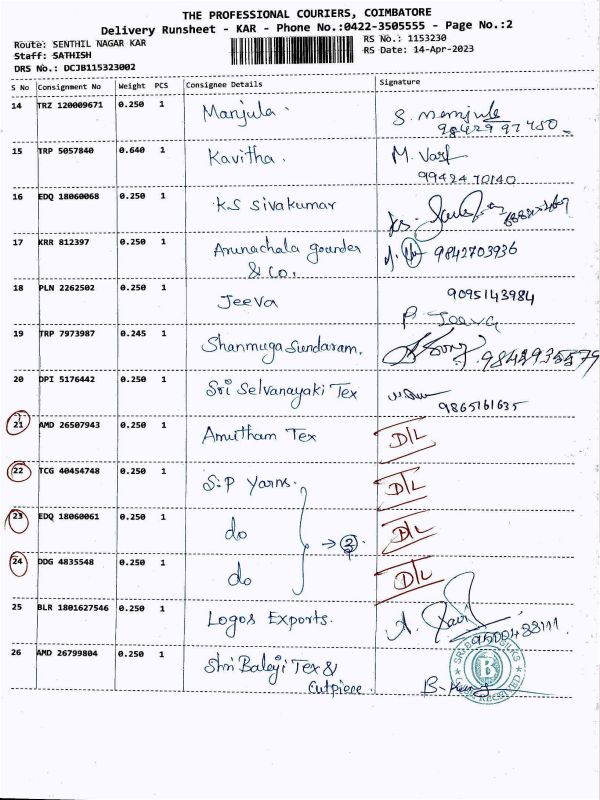 THE PROFESSIONAL COURIERS, COIMBATORE
Delivery Runsheet - KAR - Phone No.:0422-3505555 - Page No.:2
Route: SENTHIL NAGAR KAR
RS No.: 1153230
Staff: SATHISH
RS Date: 14-Apr-2023
DRS No.: DCJB115323002
S No Consignment No Weight PCS Consignee Details Signature
14 TRZ 120009671 0.250 1 Manjula.
15 TRP 5057840 0.640 1 Kavitha. M.
9942470140
16 EDQ 18060068 0.250 1 K.S Sivakumar
17 KRR 812397 0.250 1 Arunachala gounder 9842703936
& co.
18 PLN 2262502 0.250 1 Jeeva 9095143984
P. Jeeva
19 TRP 7973987 0.245 1 Shanmuga Sundaram. 9842935579
20 DPI 5176442 0.250 1 Sri Selvanayaki Tex
9865161635
21 AMD 26507943 0.250 1 Amutham Tex D/L
22 TCG 40454748 0.250 1 S.P Yarns. D/L
23 EDQ 18060061 0.250 1 do → 3. D/L
24 DDG 4835548 0.250 1 do D/L
25 BLR 1801627546 0.250 1 Logos Exports. A.
9500488111
26 AMD 26799804 0.250 1 Shri Balaji Tex &
Cutpiece.
B